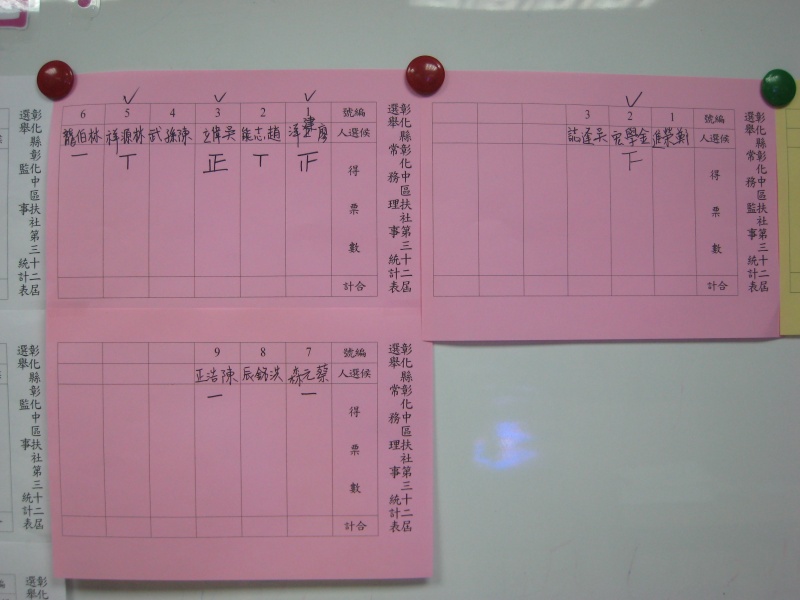 彰化縣彰化中區扶社第三十二屆
選舉常務理事監事統計表
編號 1 2 3 4 5 6
候選人 廖建洋 趙志能 吳偉立 陳孫武 林源祥 林伯龍
得票數 正 丅 正 丅 一
合計
彰化縣彰化中區扶社第三十二屆
選舉常務理事監事統計表
編號 7 8 9
候選人 蔡元森 洪錦辰 陳浩正
得票數 一 一
合計
彰化縣彰化中區扶社第三十二屆
選舉常務監事統計表
編號 1 2 3
候選人 鄭榮進 金學宏 吳達誌
得票數 下
合計